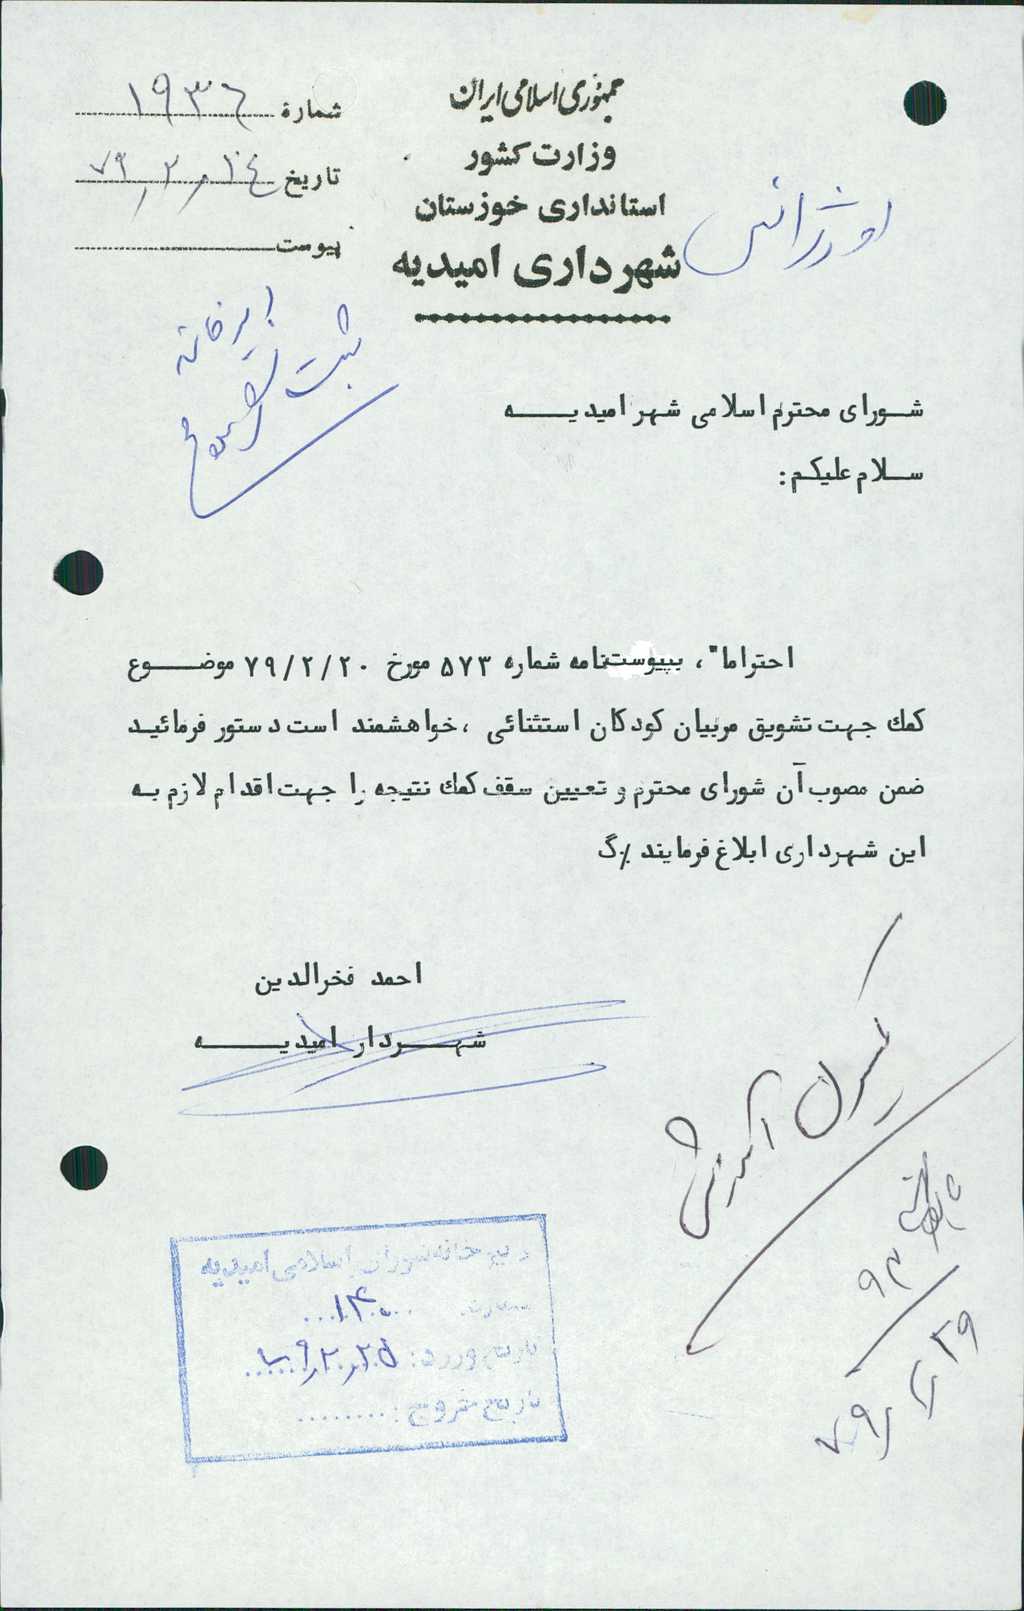 جمهوری اسلامی ایران
وزارت کشور
استانداری خوزستان
شهرداری امیدیه
شمارهٔ ۱۹۳۶
تاریخ ۷۹/۲/۲۴
پیوست
اورژانس
دبیرخانه
ثبت
شورای محترم اسلامی شهر امیدیـــه
سـلام علیکم:
احتراما"، بپیوست نامه شماره ۵۷۳ مورخ ۷۹/۲/۲۰ موضـــوع
کمك جهت تشویق مربیان کودکان استثنائی ،خواهشمند است دستور فرمائیـد
ضمن مصوب آن شورای محترم و تعیین سقف کمك نتیجه را جهت اقدام لازم بـه
این شهرداری ابلاغ فرمایند ٪گ
احمد فخرالدین
شهـــردار امیدیـــه
دبیرخانه شورای اسلامی امیدیه
شماره: ۱۴۰
تاریخ ورود: ۷۹/۲/۲۵
تاریخ خروج:
۹۳
۷۹/۲/۲۹